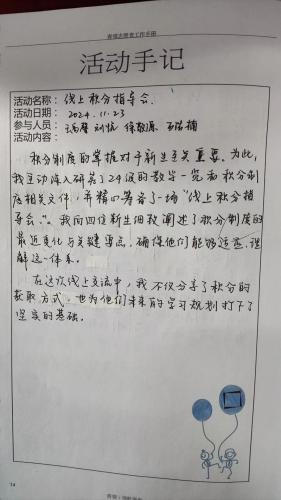 青媒志愿者工作手册
活动手记
活动名称：线上积分指导会
活动日期：2024.11.23
参与人员：刘忻 徐
活动内容：
积分制度的掌握对于新生至关重要。为此，
我主动深入研若了24级的数学一览和积分制
度相关文件，并精心筹备了一场“线上积分指
导会。”。我向四位新生细致阐述了积分制度的
最近变化与关键要点，确保他们能够适应、理
解这一体系。
在这次线上交流中，我不仅分享了积分的
获取方式，也为他们未来的学习规划打下了
坚实的基础。
14